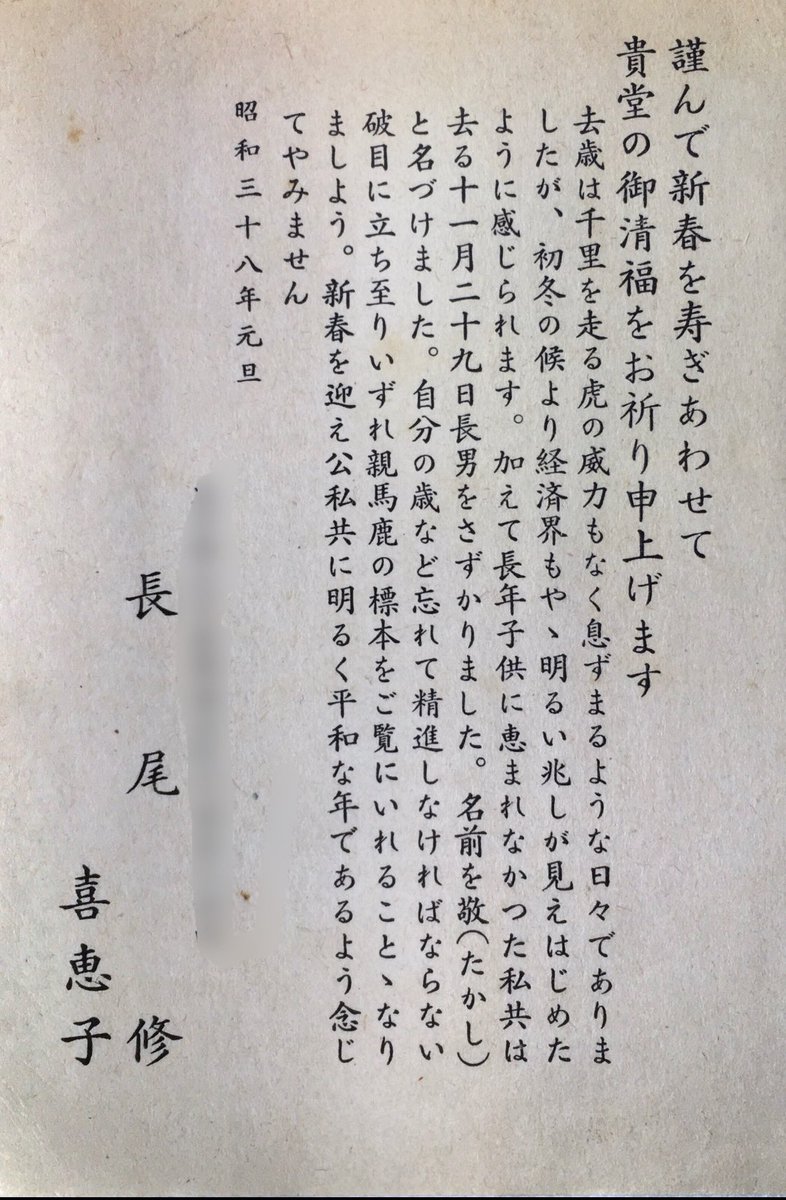 謹んで新春を寿ぎあわせて
貴堂の御清福をお祈り申上げます
去歳は千里を走る虎の威力もなく息ずまるような日々でありま
したが、初冬の候より経済界もやゝ明るい兆しが見えはじめた
ように感じられます。加えて長年子供に恵まれなかつた私共は
去る十一月二十九日長男をさずかりました。名前を敬(たかし)
と名づけました。自分の歳など忘れて精進しなければならない
破目に立ち至りいずれ親馬鹿の標本をご覧にいれることゝなり
ましよう。新春を迎え公私共に明るく平和な年であるよう念じ
てやみません
昭和三十八年元旦
長尾 修
喜恵子